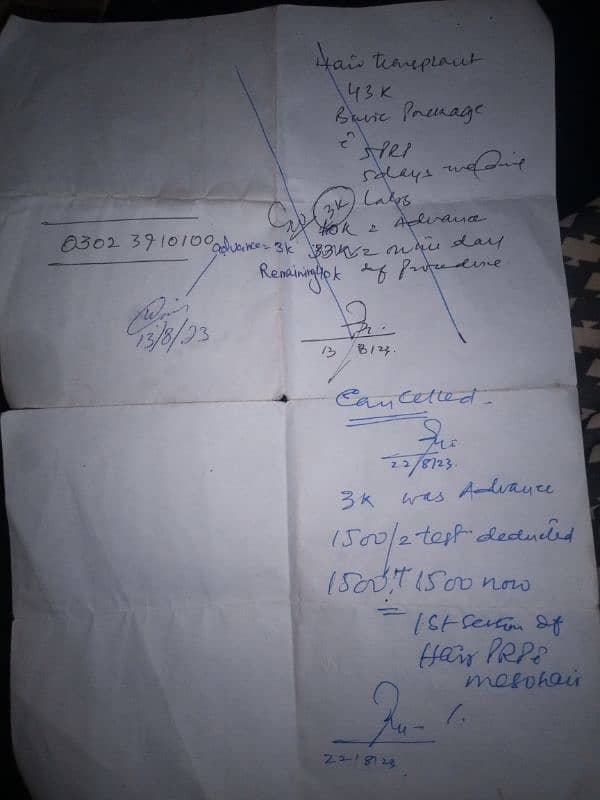 Hair transplant
43K
Basic Package
c̄
5 PRP
5 days medicine
Labs
3K
10K = Advance
0302 3910100
advance = 3K 33K = on the day
Remaining 40k of Procedure
13/8/23
13 8/23.
Cancelled.
22/8/23.
3K was Advance
1500/= test deducted
1500 + 1500 now
=
1st session of
Hair PRP c̄
mesohair
22/8/23